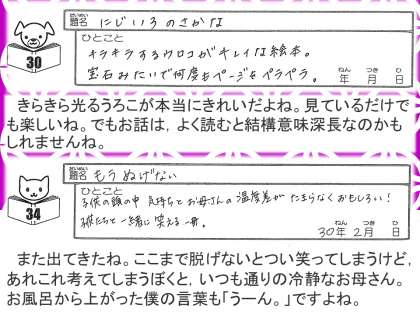 だいめい
題名 にじいろのさかな
ひとこと
キラキラするウロコがキレイな絵本。
宝石みたいで何度もページをペラペラ。
ねん つき ひ
年 月 日
30
きらきら光るうろこが本当にきれいだよね。見ているだけで
も楽しいね。でもお話は，よく読むと結構意味深長なのかも
しれませんね。
だいめい
題名 もうぬげない
ひとこと
子供の頭の中 気持ちとお母さんの温度差がたまらなくおもしろい！
子供たちと一緒に笑える一冊。
ねん つき ひ
30年 2月 日
34
また出てきたね。ここまで脱げないとつい笑ってしまうけど，
あれこれ考えてしまうぼくと，いつも通りの冷静なお母さん。
お風呂から上がった僕の言葉も「うーん。」ですよね。